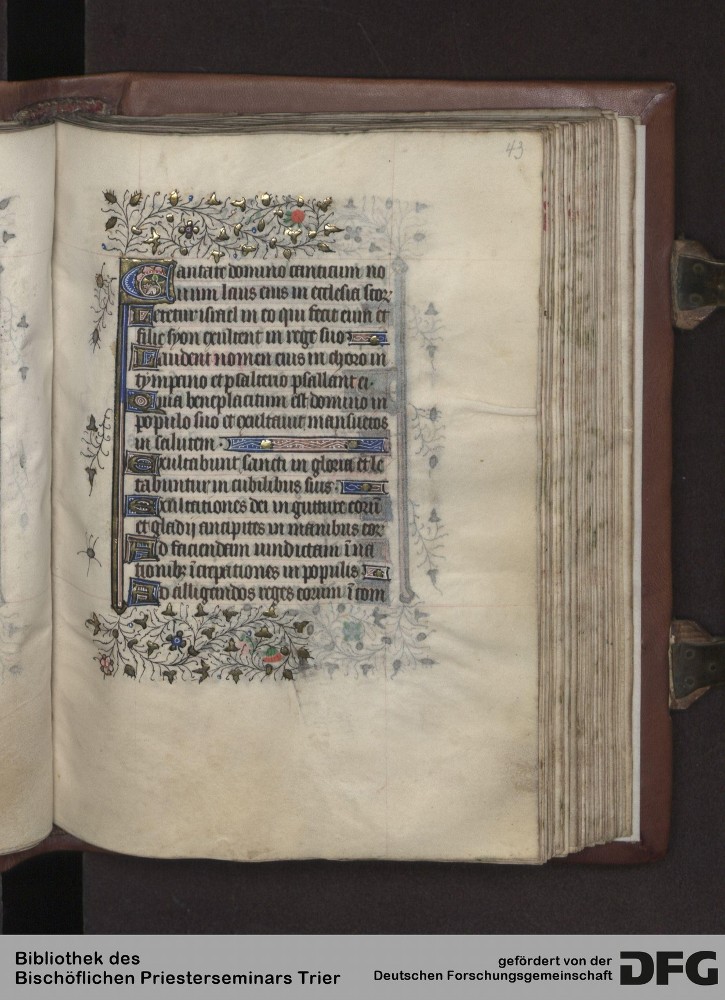 43
Cantate domino canticum no
uum laus eius in ecclesia scoꝝ
Letetur israel in eo qui fecit eum et
filie syon exultent in rege suo
Laudent nomen eius in choro in
tympano et psalterio psallant ei.
Quia beneplacitum est domino in
populo suo et exultauit mansuetos
in salutem
Exultabunt sancti in gloria et le
tabuntur in cubilibus suis
Exultationes dei in gutture eorū
et gladij ancipites in manibus eoꝝ
Ad faciendam uindictam ī na
tionibꝫ īcrepationes in populis
Ad alligandos reges eorum ī com
Bibliothek des
Bischöflichen Priesterseminars Trier
gefördert von der
Deutschen Forschungsgemeinschaft
DFG